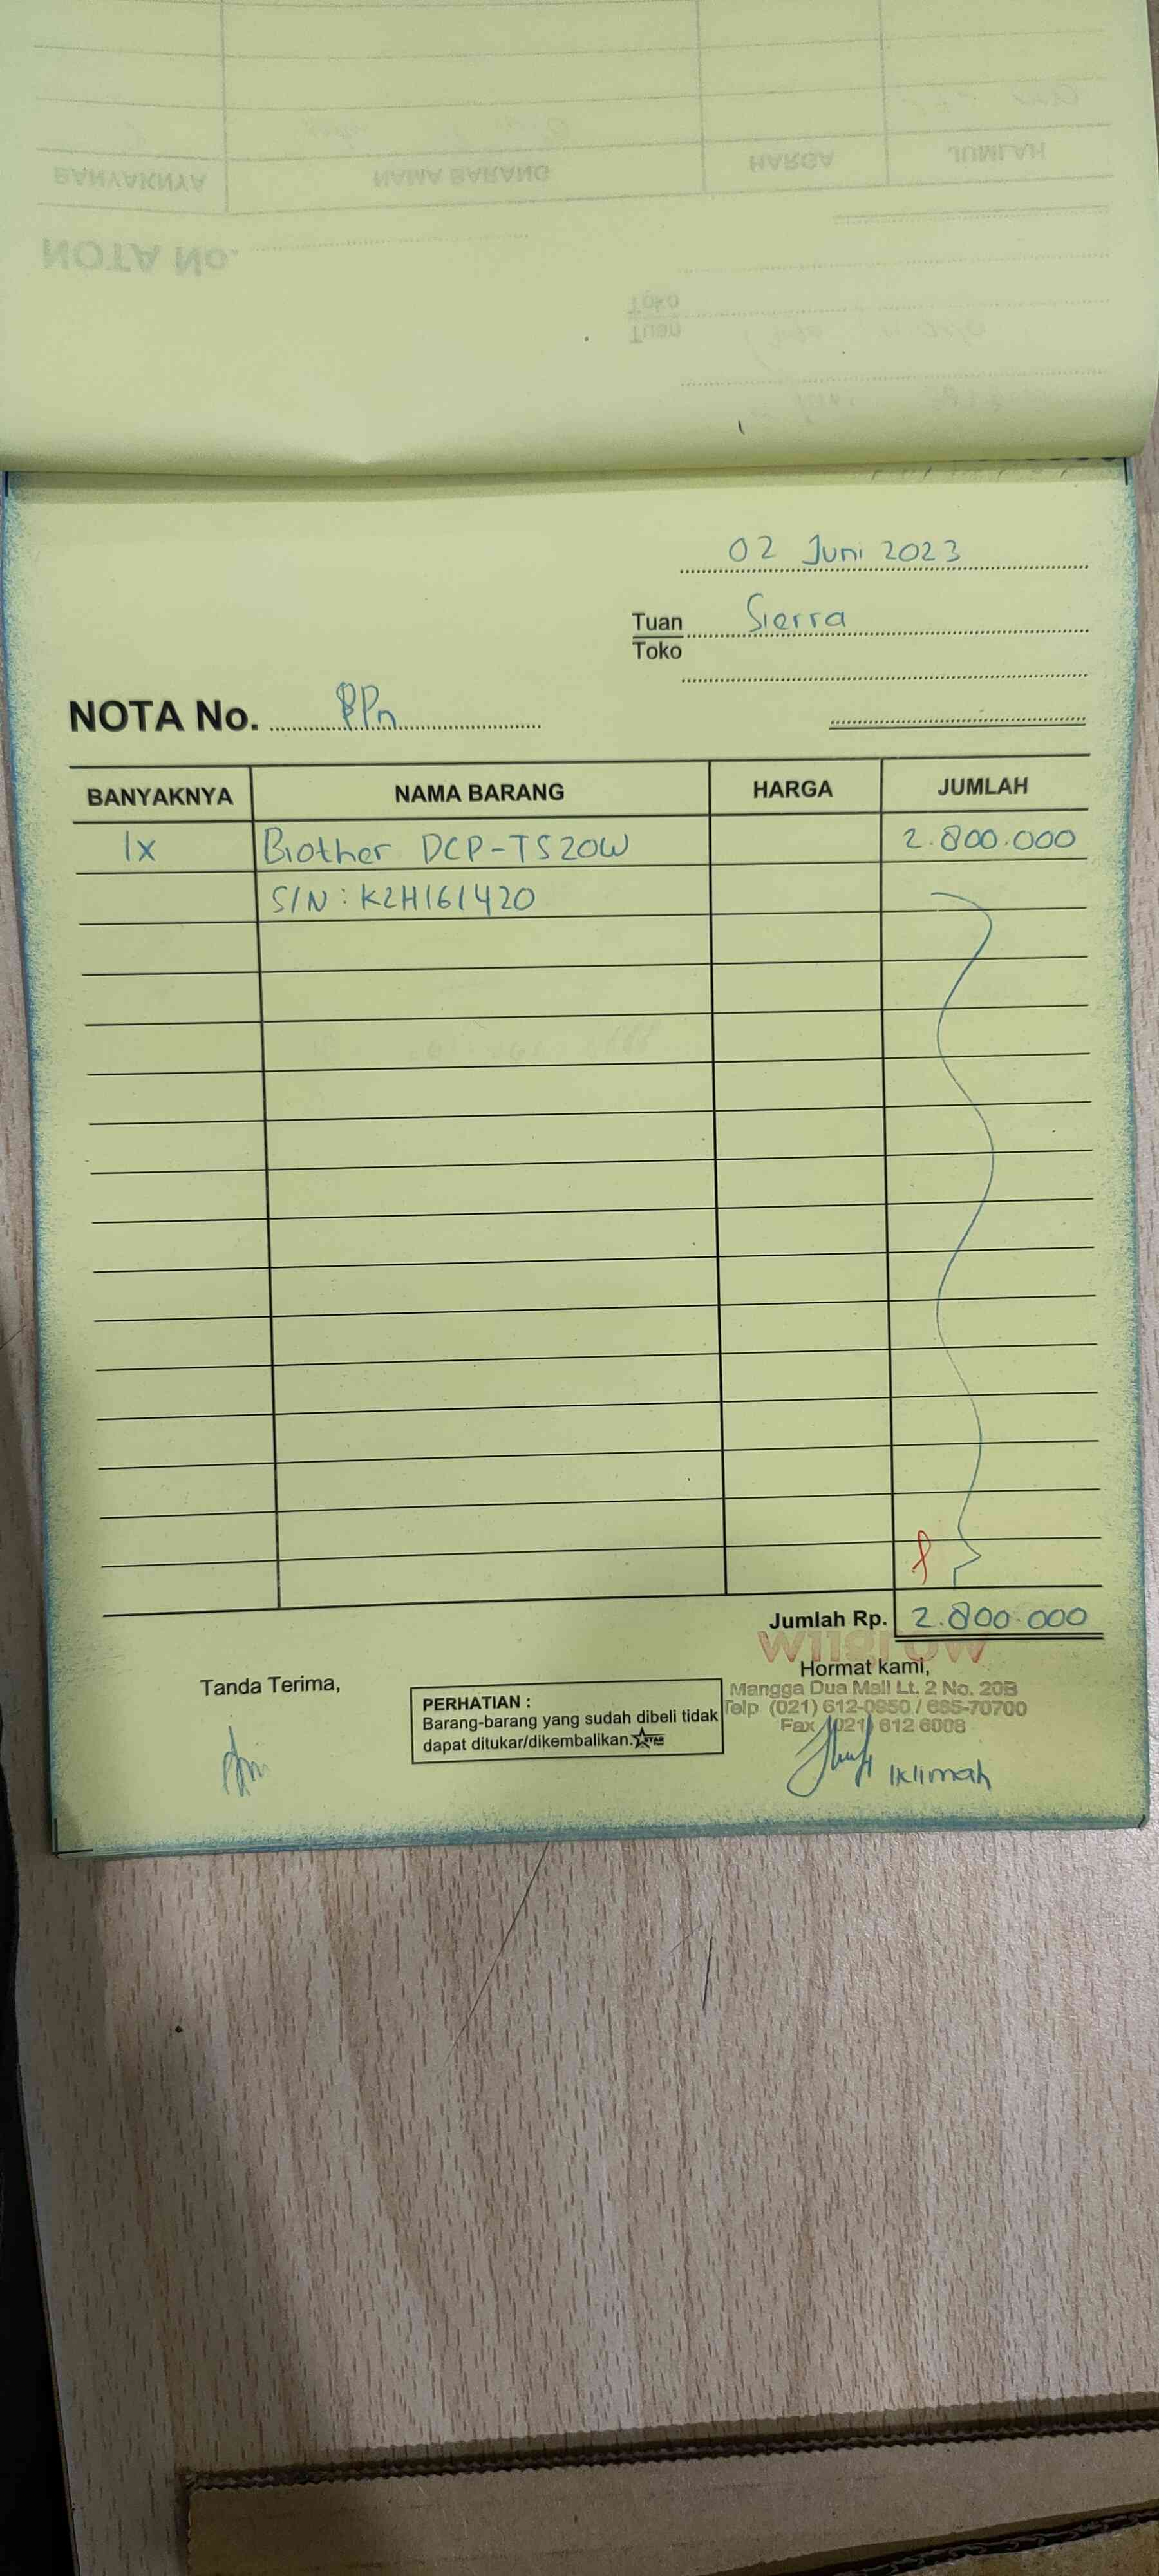 02 Juni 2023
Tuan Sierra
Toko
NOTA No. PPn
BANYAKNYA NAMA BARANG HARGA JUMLAH
1x Brother DCP-T520W 2.800.000
S/N : K2H161420
Jumlah Rp. 2.800.000
Tanda Terima,
Hormat kami,
wiigrow
Mangga Dua Mall Lt. 2 No. 20B
Telp (021) 612-0950 / 685-70700
Fax (021) 612 6008
PERHATIAN :
Barang-barang yang sudah dibeli tidak
dapat ditukar/dikembalikan.
STAR
Iklimah
NOTA No.
Tuan
Toko
BANYAKNYA NAMA BARANG HARGA JUMLAH